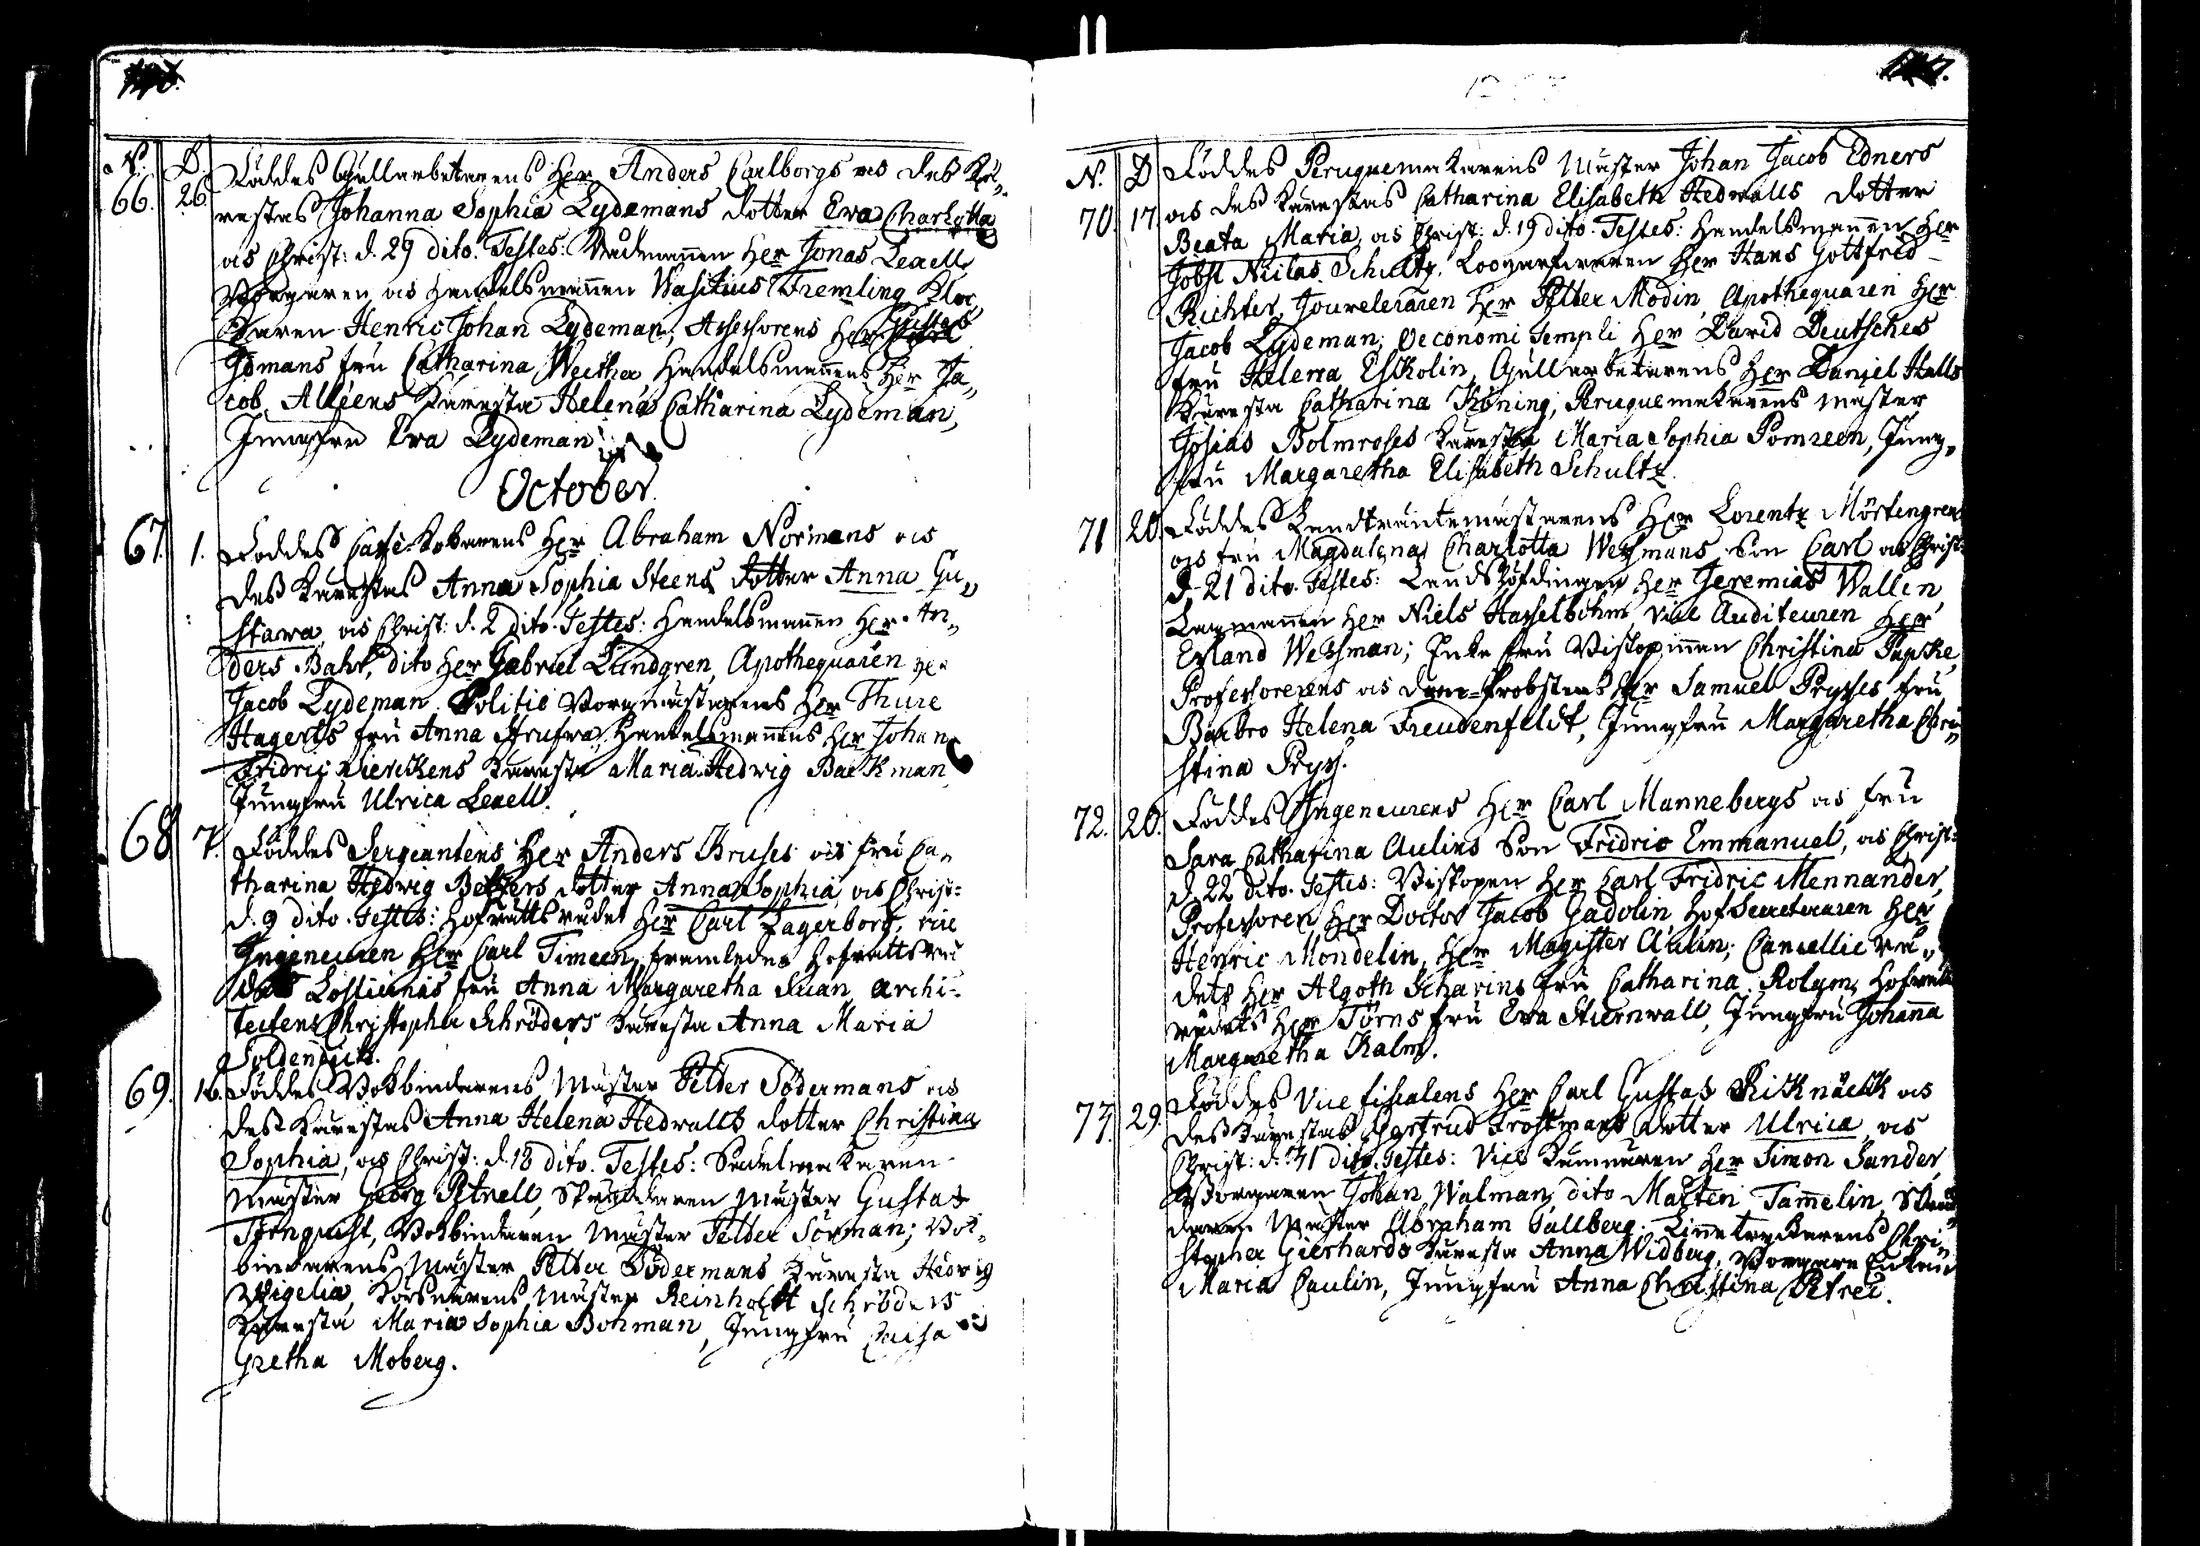 N. D. Föddes Gullarbetarens Herr Anders Carlborgs och deß Kä„
66. 26. restas Johanna Sophia Lydemans dotter Eva Charlotta
och Christ: d. 29 dito. Testes: Rådmannen Herr Jonas Lexell,
Borgaren och Handelsmannen Wasilius Fremling,
Henric Johan Lydeman, Assessorens Herr
Idmans fru Catharina Wecther Handelsmannens Herr Ja„
cob Alléens Käresta Helena Catharina Lydeman,
Jungfru Eva Lydeman
October
67. 1. Föddes Caffé-Kokarens Herr Abraham Normans och
deß Kärestas Anna Sophia Steens dotter Anna Gu„
stava, och Christ: d. 2 dito. Testes: Handelsmannen Herr An„
ders Bahr, dito Herr Gabriel Lundgren, Apothequaren Herr
Jacob Lydeman. Politie Borgmästarens Herr Thure
Hagerts fru Anna Handelsmannens Herr Johan
Fridric Dierckens Käresta Maria Hedwig Backman,
Jungfru Ulrica Lexell.
68 7. Föddes Sergeantens Herr Anders Kruses och fru Ca„
tharina Hedwig Betzers dotter Anna Sophia, och Christ:
d. 9 dito. Testes: Hofrättsrådet Herr Carl Lagerborg, vice
Ingeneuren Herr Carl Timeen, framledne Hofrätts rå
dets Losticenas fru Anna Margaretha archi„
tectens Christopher Schröders Käresta Anna Maria
69. 16. Föddes Bokbindarens Mäster Petter Södermans och
deß Kärestas Anna Helena Hedwalls dotter Christina
Sophia, och Christ: d. 18 dito. Testes: Sadelmakaren
Mäster Georg Petrell, Skräddaren Mäster Gustaf
Bokbindaren Mäster Petter Sörman; Bok„
bindarens Mäster Petter Södermans Käresta Hedvig
Wigelia, Körsnärens Mäster Reinholdt Schröders
Käresta Maria Sophia Bohman, Jungfru Caisa
Gretha Moberg.
N. D Föddes Peruquemakarens Mäster Johan Jacob Edners
70. 17. och deß Kärestas Catharina Elisabeth Hedwalls dotter
Beata Maria, och Christ: d. 19 dito. Testes: Handelsmannen Herr
Jobst Niclas Schultz, Herr Hans Gottfried
Richter, Jouveleraren Herr Petter Modin, Apothequaren Herr
Jacob Lydeman; Oeconomi Templi Herr David Deutsches
fru Helena Escholin, Gullarbetarens Herr Daniel Halls
Käresta Catharina Köning, Peruquemakarens Mäster
Josias Bolmroses Käresta Maria Sophia Pomreen, Jung„
fru Margaretha Elisabeth Schultz.
71 20. Föddes Landträntemästarens Herr Lorentz Mörtengrens
och fru Magdalena Charlotta Wessmans Son Carl och Christ:
d. 21 dito. Testes: Landshöfdingen Herr Jeremias Wallen
Lagmannen Herr Niels Hasselbohm, Vice Auditeuren Herr
Erland Wessman; Enke fru Biskopinnan Christina
Professorerens och dom-Probstens Herr Samuel Prysses fru
Barbro Helena Freudenfeldt, Jungfru Margaretha Chri„
stina Pryss.
72. 20. Föddes Ingeneurens Herr Carl Mannebergs och fru
Sara Catharina Aulins Son Fridric Emmanuel, och Christ:
d. 22 dito. Testes: Biskopen Herr Carl Fridric Mennander,
Professoren Herr Doctor Jacob Gadolin, Hof Secreteraren Herr
Henric Mondelin, Herr Magister Aulin; Cancellie rå„
dets Herr Algoth Scharins fru Catharina Rolyon, Hofrätts
rådets Herr Törns fru Eva Stiernwall, Jungfru Johanna
Margaretha Kalm.
73. 29. Föddes Vice fiscalens Herr Carl Gustaf och
deß Kärestas Gertrud Tröstmans dotter Ulrica och
Christ: d. 31 dito. Testes: Vice Kämnären Herr Simon Sander,
Borgaren Johan Walman, dito Marten Tamelin, Skräd„
daren Mäster Abraham Tallberg. Linnetryckarens Chri„
stopher Gierhards Käresta Anna Widberg, Borgare Enkan
Maria Paulin, Jungfru Anna Christina Petrei.